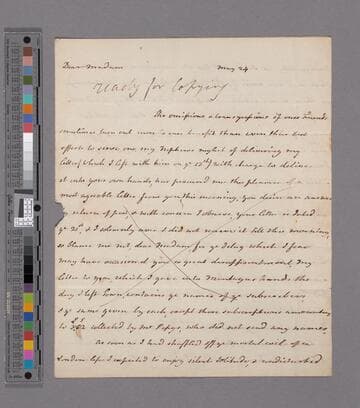 Dear Madam May 24
ready for Copying
The omissions & transgressions of our friends
sometimes turn out more to our benefit than even their best
efforts to serve us, my Nephews neglect of delivering my
Letter (which I left with him on ye 12th) with charge to deliver
it into your own hands, has procured me the pleasure of a
most agreable Letter from you this morning, you desire an answer
by return of post, & with concern I observe, your letter is dated
ye 20, & I solemnly aver I did not receive it till this morning,
so blame me not dear Madam for ye delay which I fear
may have occasioned you a great disappointment, My
Letter to you which I gave into Montague hands the
day I left Town, contains ye names of ye subscribers
& ye sums given by each, except those subscriptions amounting
to collected by Mr Pepys, who did not send any names.
As soon as I had shuffled off ye mortal coil of a
London life I expected to enjoy silent solitude, & undisturbed